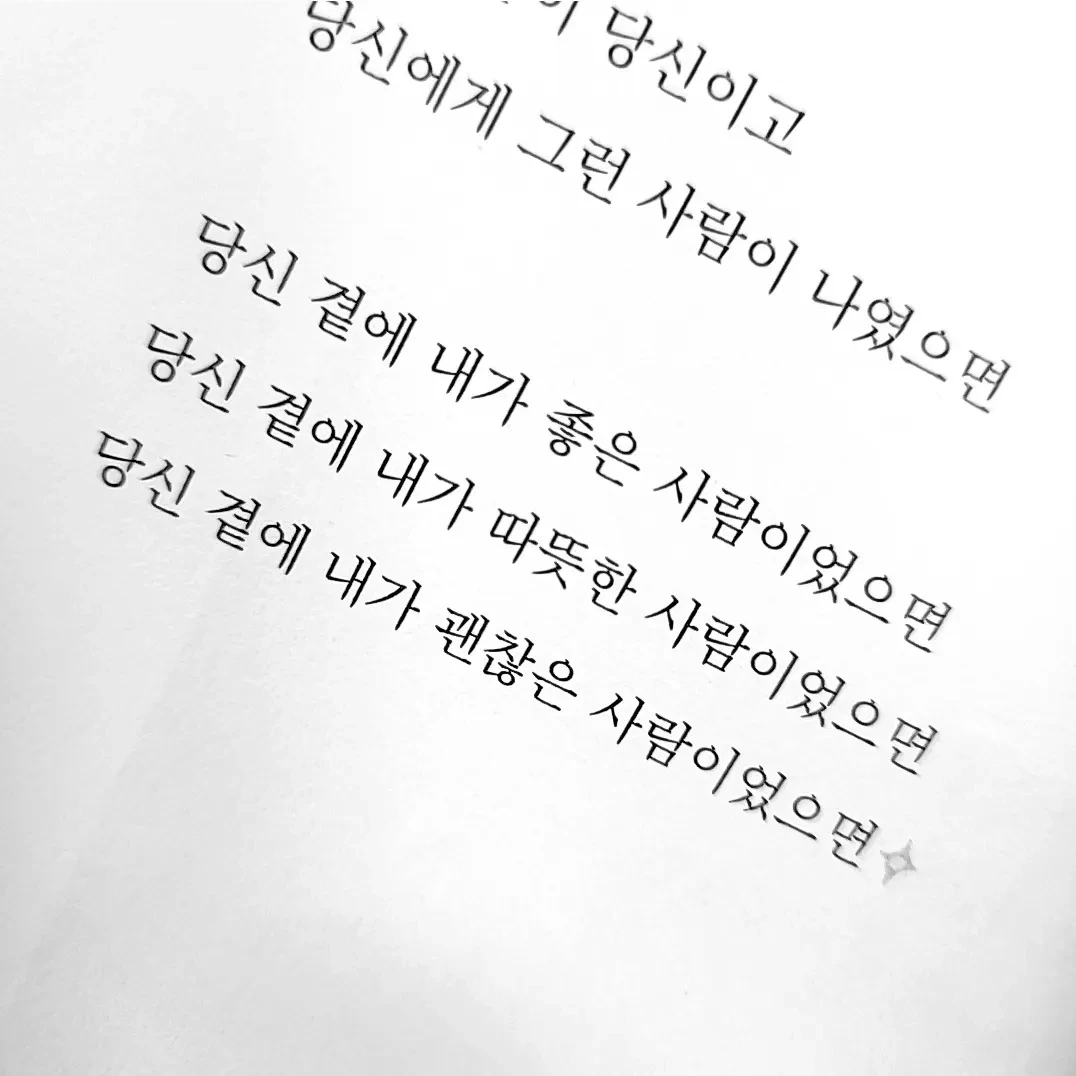 당신이고
당신에게 그런 사람이 나였으면
당신 곁에 내가 좋은 사람이었으면
당신 곁에 내가 따뜻한 사람이었으면
당신 곁에 내가 괜찮은 사람이었으면